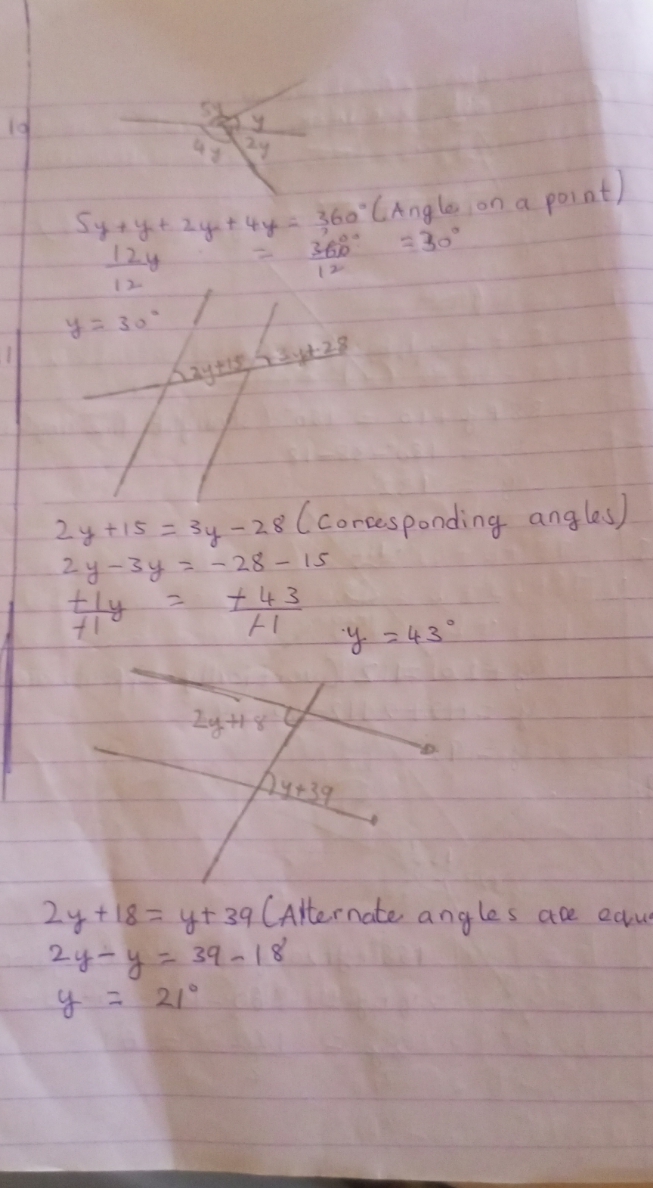 10
5y
y
4y
2y
5y + y + 2y + 4y = 360° (Angle on a point)
12y = 360° = 30°
12 12
y = 30°
1
2y+15 3y-28
2y + 15 = 3y - 28 (Corresponding angles)
2y - 3y = -28 - 15
-1y = -43
-1 -1
y = 43°
2y+18
y+39
2y + 18 = y + 39 (Alternate angles are equ
2y - y = 39 - 18
y = 21°